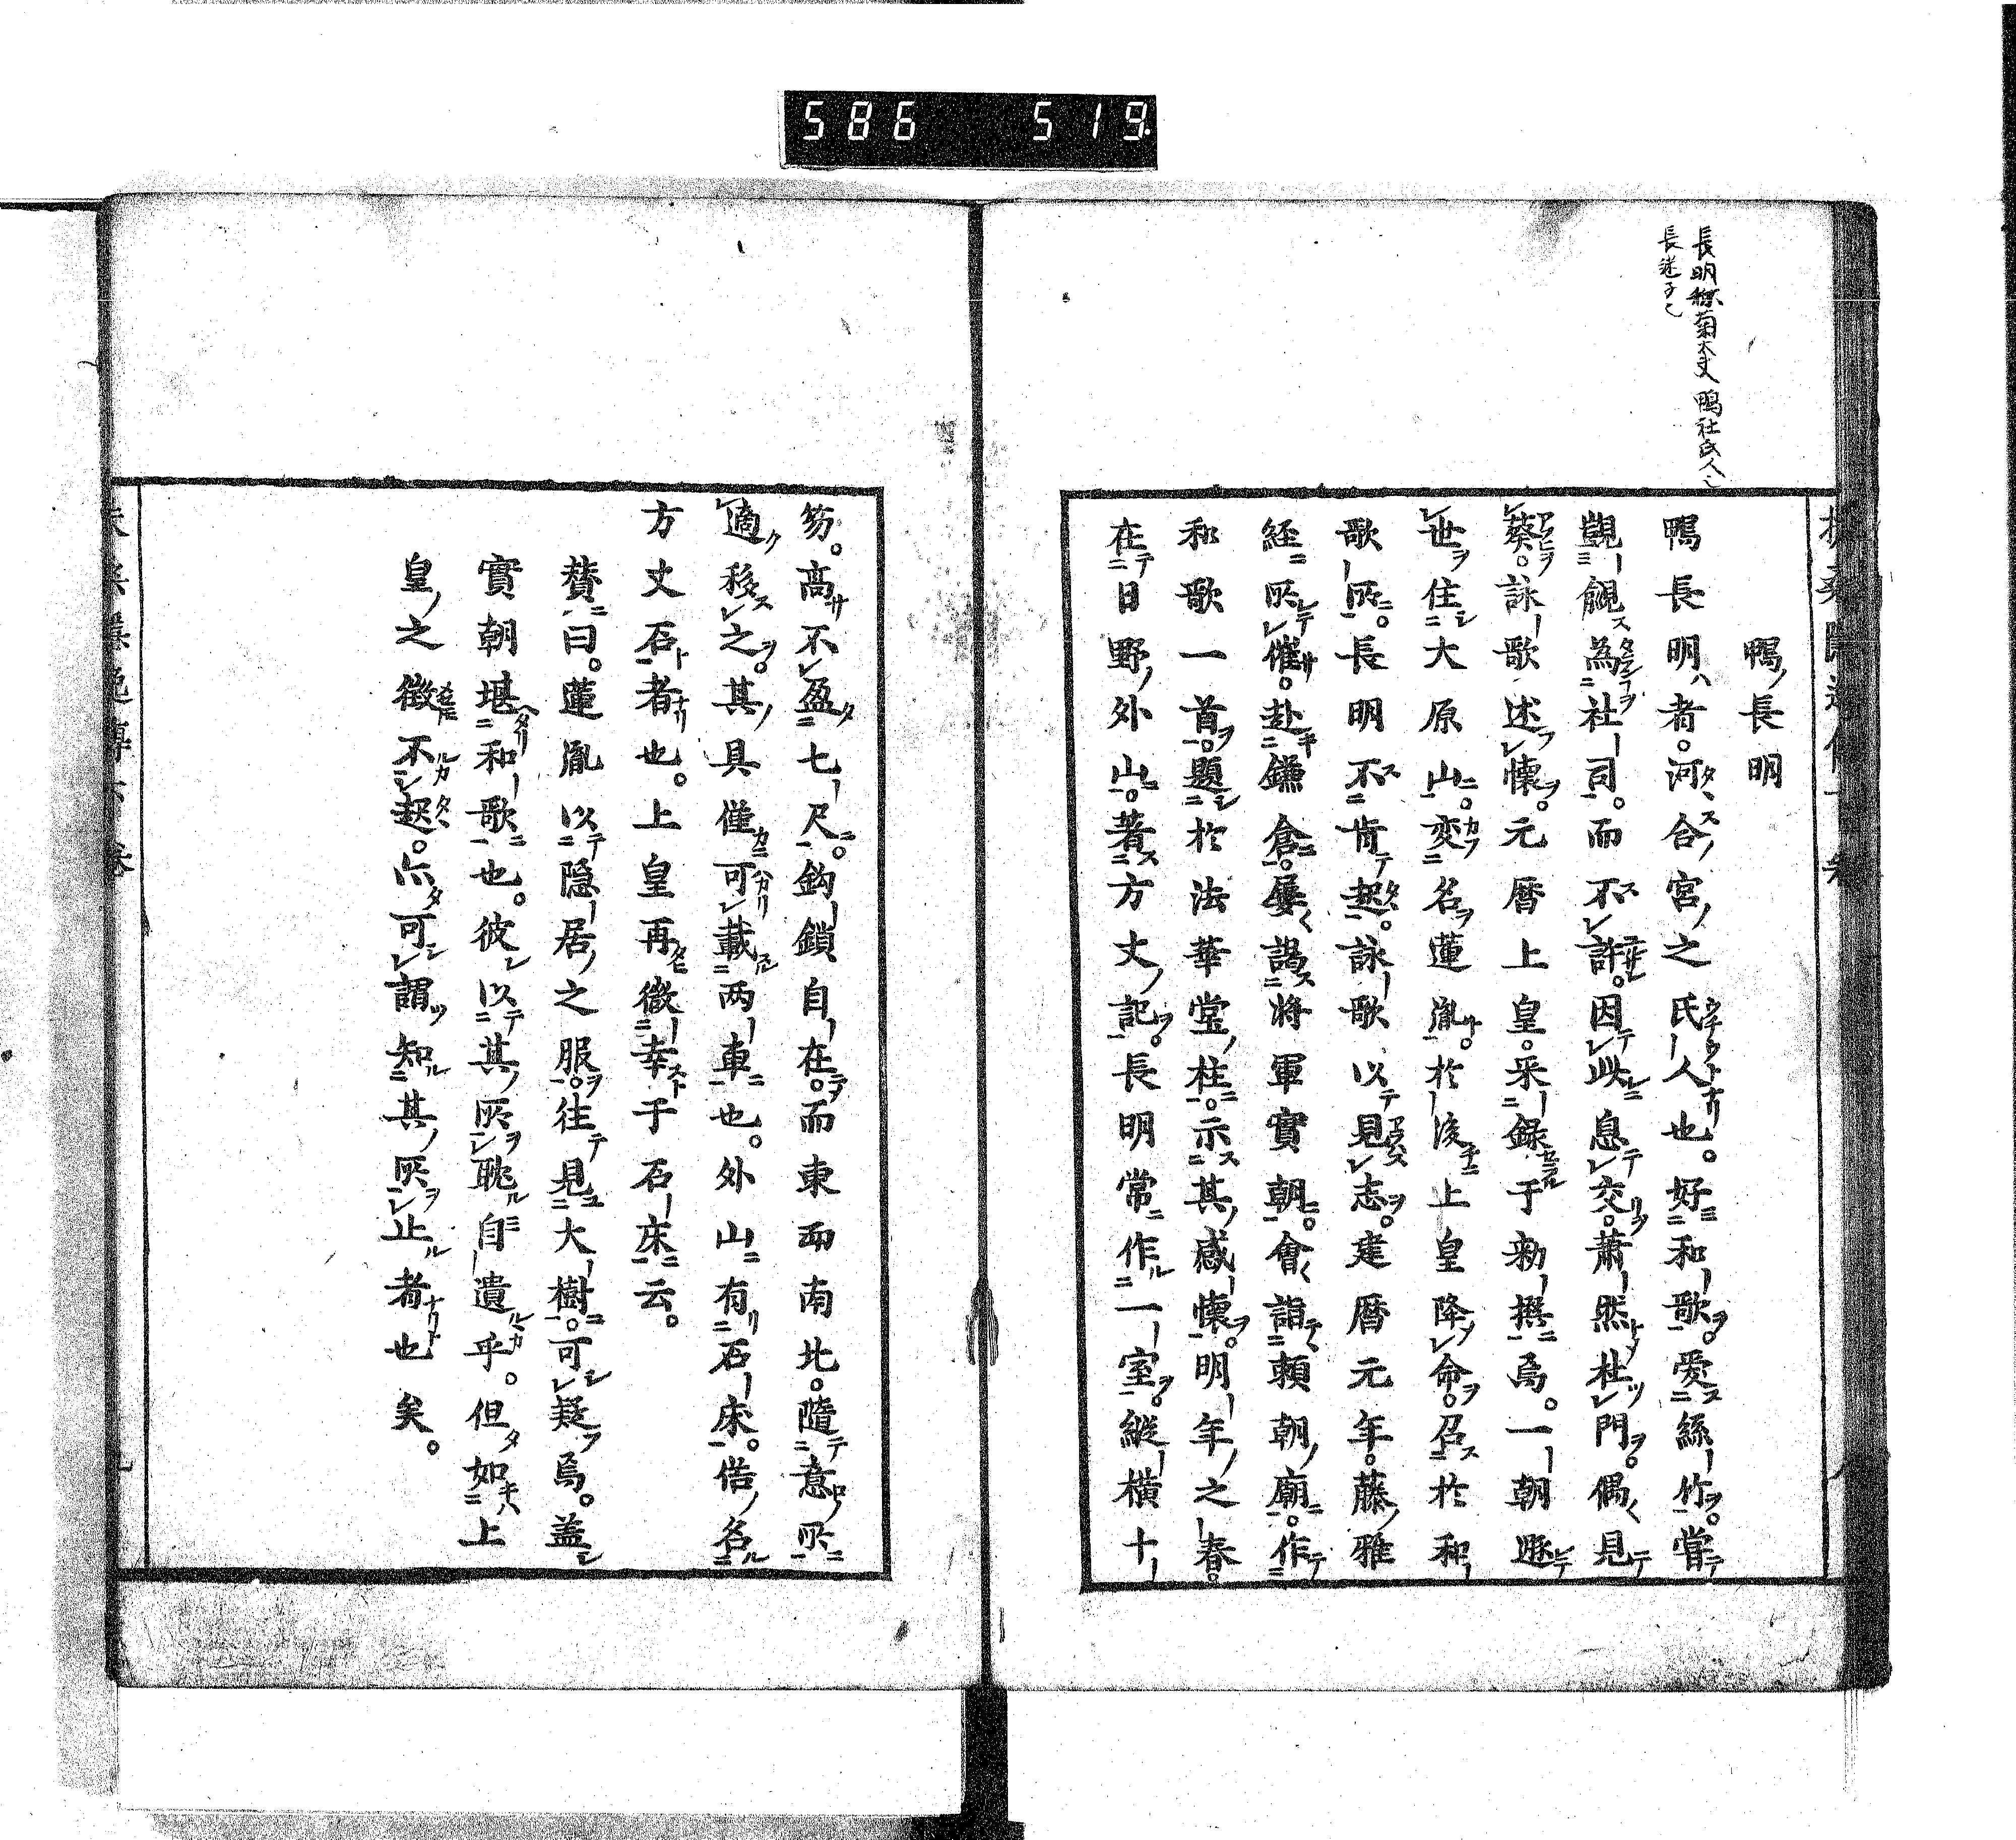 586 519.
長明称菊大夫 鴨社氏人也
長継子也
鴨長明
鴨長明者。河合宮之氏人也。好和歌。愛絲竹。甞
覬覦為社司。而不許。因此息交。蕭然杜門。偶見
葵。詠歌述懷。元暦上皇。采録于勅撰焉。一朝遯
世住大原山。変名蓮胤。於後上皇降命。召於和
歌所。長明不肯起。詠歌以見志。建暦元年。藤雅
経所催。赴鎌倉。屡謁将軍實朝。會詣頼朝廟。作
和歌一首。題於法華堂柱。示其感懷。明年之春。
在日野外山。著方丈記。長明常作一室。縦横十
笏。高不盈七尺。鈎鎖自在。而東西南北。隨意所
適移之。其具僅可載両車也。外山有石床。偕名
方丈石者也。上皇再徴幸于石床云。
賛曰。蓮胤以隠居之服。往見大樹。可疑焉。蓋
實朝堪和歌也。彼以其所耽自遺乎。但如上
皇之徴不起。亦可謂知其所止者也矣。